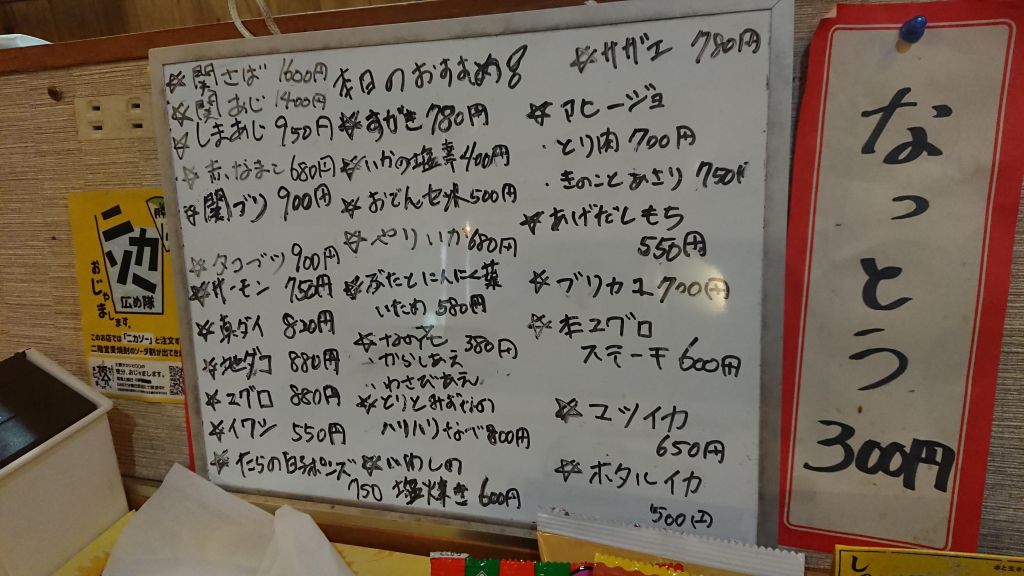 本日のおすすめ
☆関さば 1600円
☆関あじ 1400円
☆しまあじ 950円
☆赤なまこ 680円
☆関ブリ 900円
☆タコブツ 900円
☆サーモン 750円
☆真ダイ 820円
☆地ダコ 880円
☆マグロ 880円
☆イワシ 550円
☆たらの白子ポンズ
750
☆すがき 780円
☆いかの塩辛 400円
☆おでんセット 500円
☆やりいか 680円
☆ぶたとにんにく葉
いため 580円
☆なの花 380円
・からしあえ
・わさびあえ
☆とりとみずなの
ハリハリなべ 800円
☆いわしの
塩焼き 600円
☆サザエ 780円
☆アヒージョ
・とり肉 700円
・きのことあさり 750円
☆あげだしもち
550円
☆ブリカマ 700円
☆本マグロ
ステーキ 600円
☆マツイカ
650円
☆ホタルイカ
500円
なっとう
300円
ニカソー
広め隊
おじゃま
します。
このお店では「ニカソー」と注文す
二階堂麦焼酎のソーダ割が出てきま